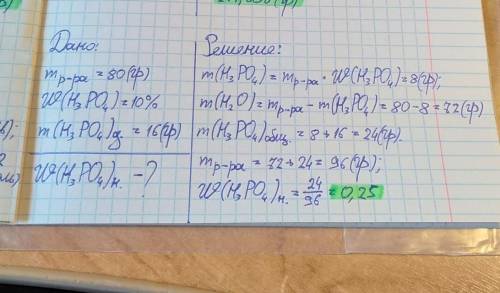 Дано:
m р-ра = 80(гр)
W(H₃PO₄) = 10%
m(H₃PO₄)д = 16(гр)
W(H₃PO₄)н. - ?
Решение:
m(H₃PO₄) = m р-ра · W(H₃PO₄) = 8(гр);
m(H₂O) = m р-ра - m(H₃PO₄) = 80 - 8 = 72(гр)
m(H₃PO₄)общ. = 8 + 16 = 24(гр).
m р-ра = 72 + 24 = 96(гр);
W(H₃PO₄)н. = 24/96 = 0,25